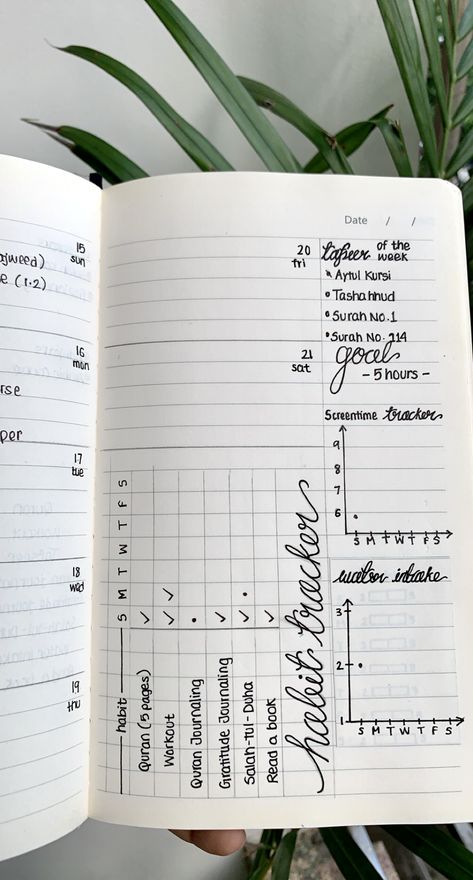 15
sun
ajweed)
e (1.2)
16
mon
rse
per
17
tue
18
wed
19
thu
Date / /
20
fri
21
sat
tafseer of the week
Aytul Kursi
Tashahhud
Surah No.1
Surah No. 114
goal
- 5 hours -
Screentime tracker
9
8
7
6
S M T W T F S
water intake
3
2
1
S M T W T F S
habit tracker
habit S M T W T F S
Quran (5 pages) ✓
Workout ✓ ✓
Quran Journaling •
Gratitude Journaling ✓
Salah-tul-Duha ✓ •
Read a book ✓